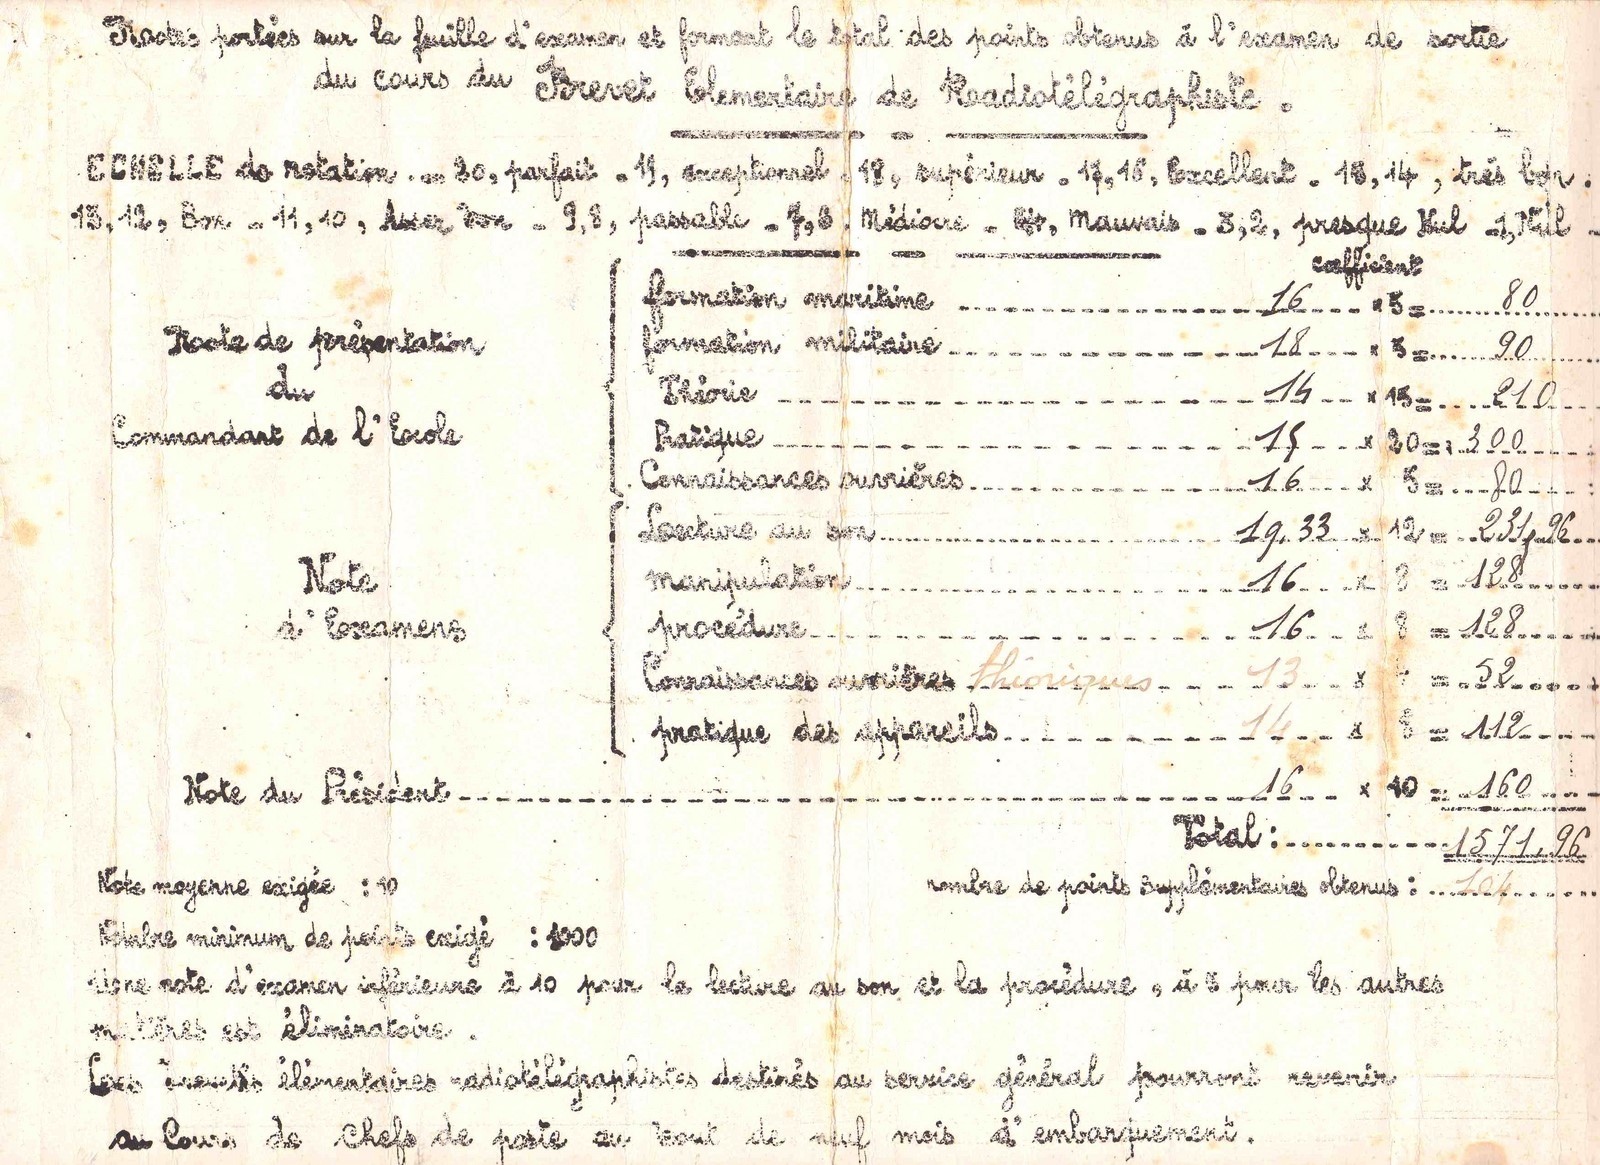 Notes portées sur la feuille d'examen et formant le total des points obtenus à l'examen de sortie
du cours du Brevet Elementaire de Radiotélégraphiste.
ECHELLE de notation . _ 20, parfait - 19, exceptionnel - 18, supérieur - 17,16, Excellent - 15,14, très bon.
13,12, Bon - 11,10, Assez bon - 9,8, passable - 7,6. Médiocre - 5,4, Mauvais - 3,2, presque Nul - 1, Nul -
coefficient
formation maritime 16 x 5 = 80
formation militaire 18 x 5 = 90
Note de présentation du Commandant de l'Ecole
Théorie 14 x 15 = 210
Pratique 15 x 20 = 300
Connaissances ouvrières 16 x 5 = 80
Lecture au son 19,33 x 12 = 231,96
manipulation 16 x 8 = 128
Note d'Examens
procédure 16 x 8 = 128
Connaissances ouvrières théoriques 13 x 4 = 52
pratique des appareils 14 x 8 = 112
Note du Président 16 x 10 = 160
Total : 1571,96
Note moyenne exigée : 10 nombre de points supplémentaires obtenus : 104
Nombre minimum de points exigé : 1000
Une note d'examen inférieure à 10 pour la lecture au son et la procédure, à 5 pour les autres
matières est éliminatoire.
Les brevetés élémentaires radiotélégraphistes destinés au service général pourront revenir
au Cours de chefs de poste au bout de neuf mois d'embarquement.